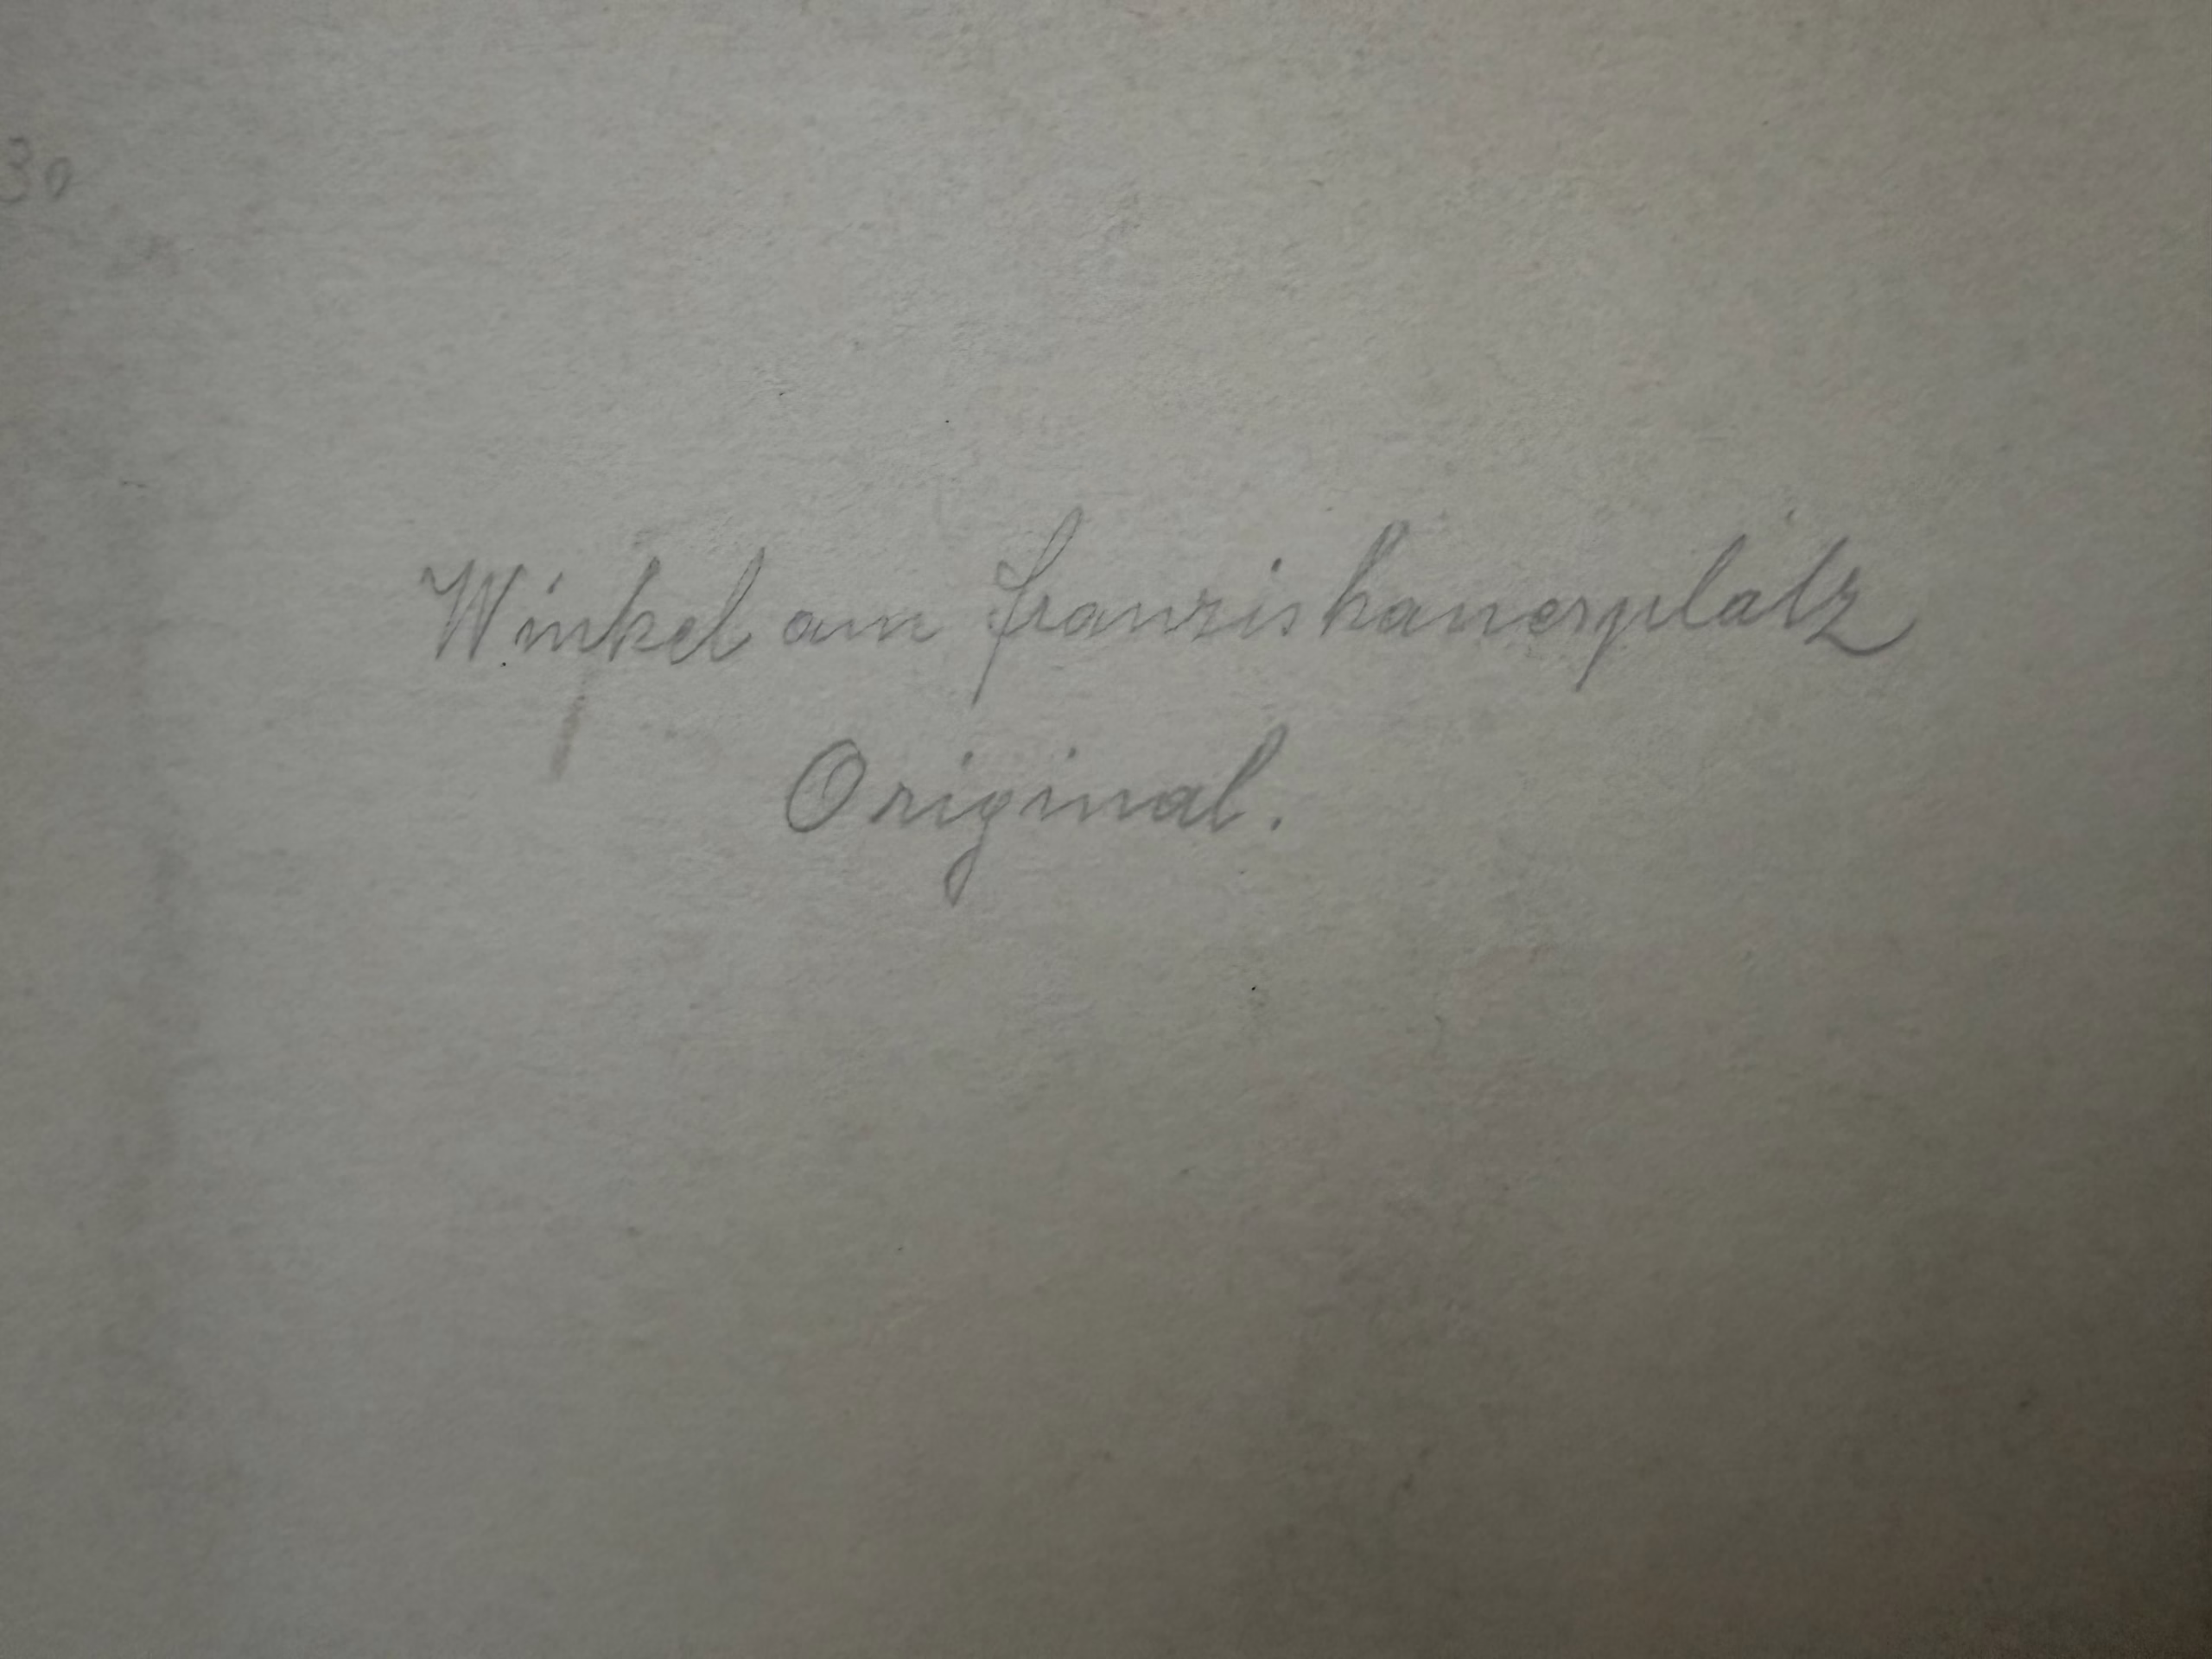 30
Winkel am franziskanerplatz
Original.